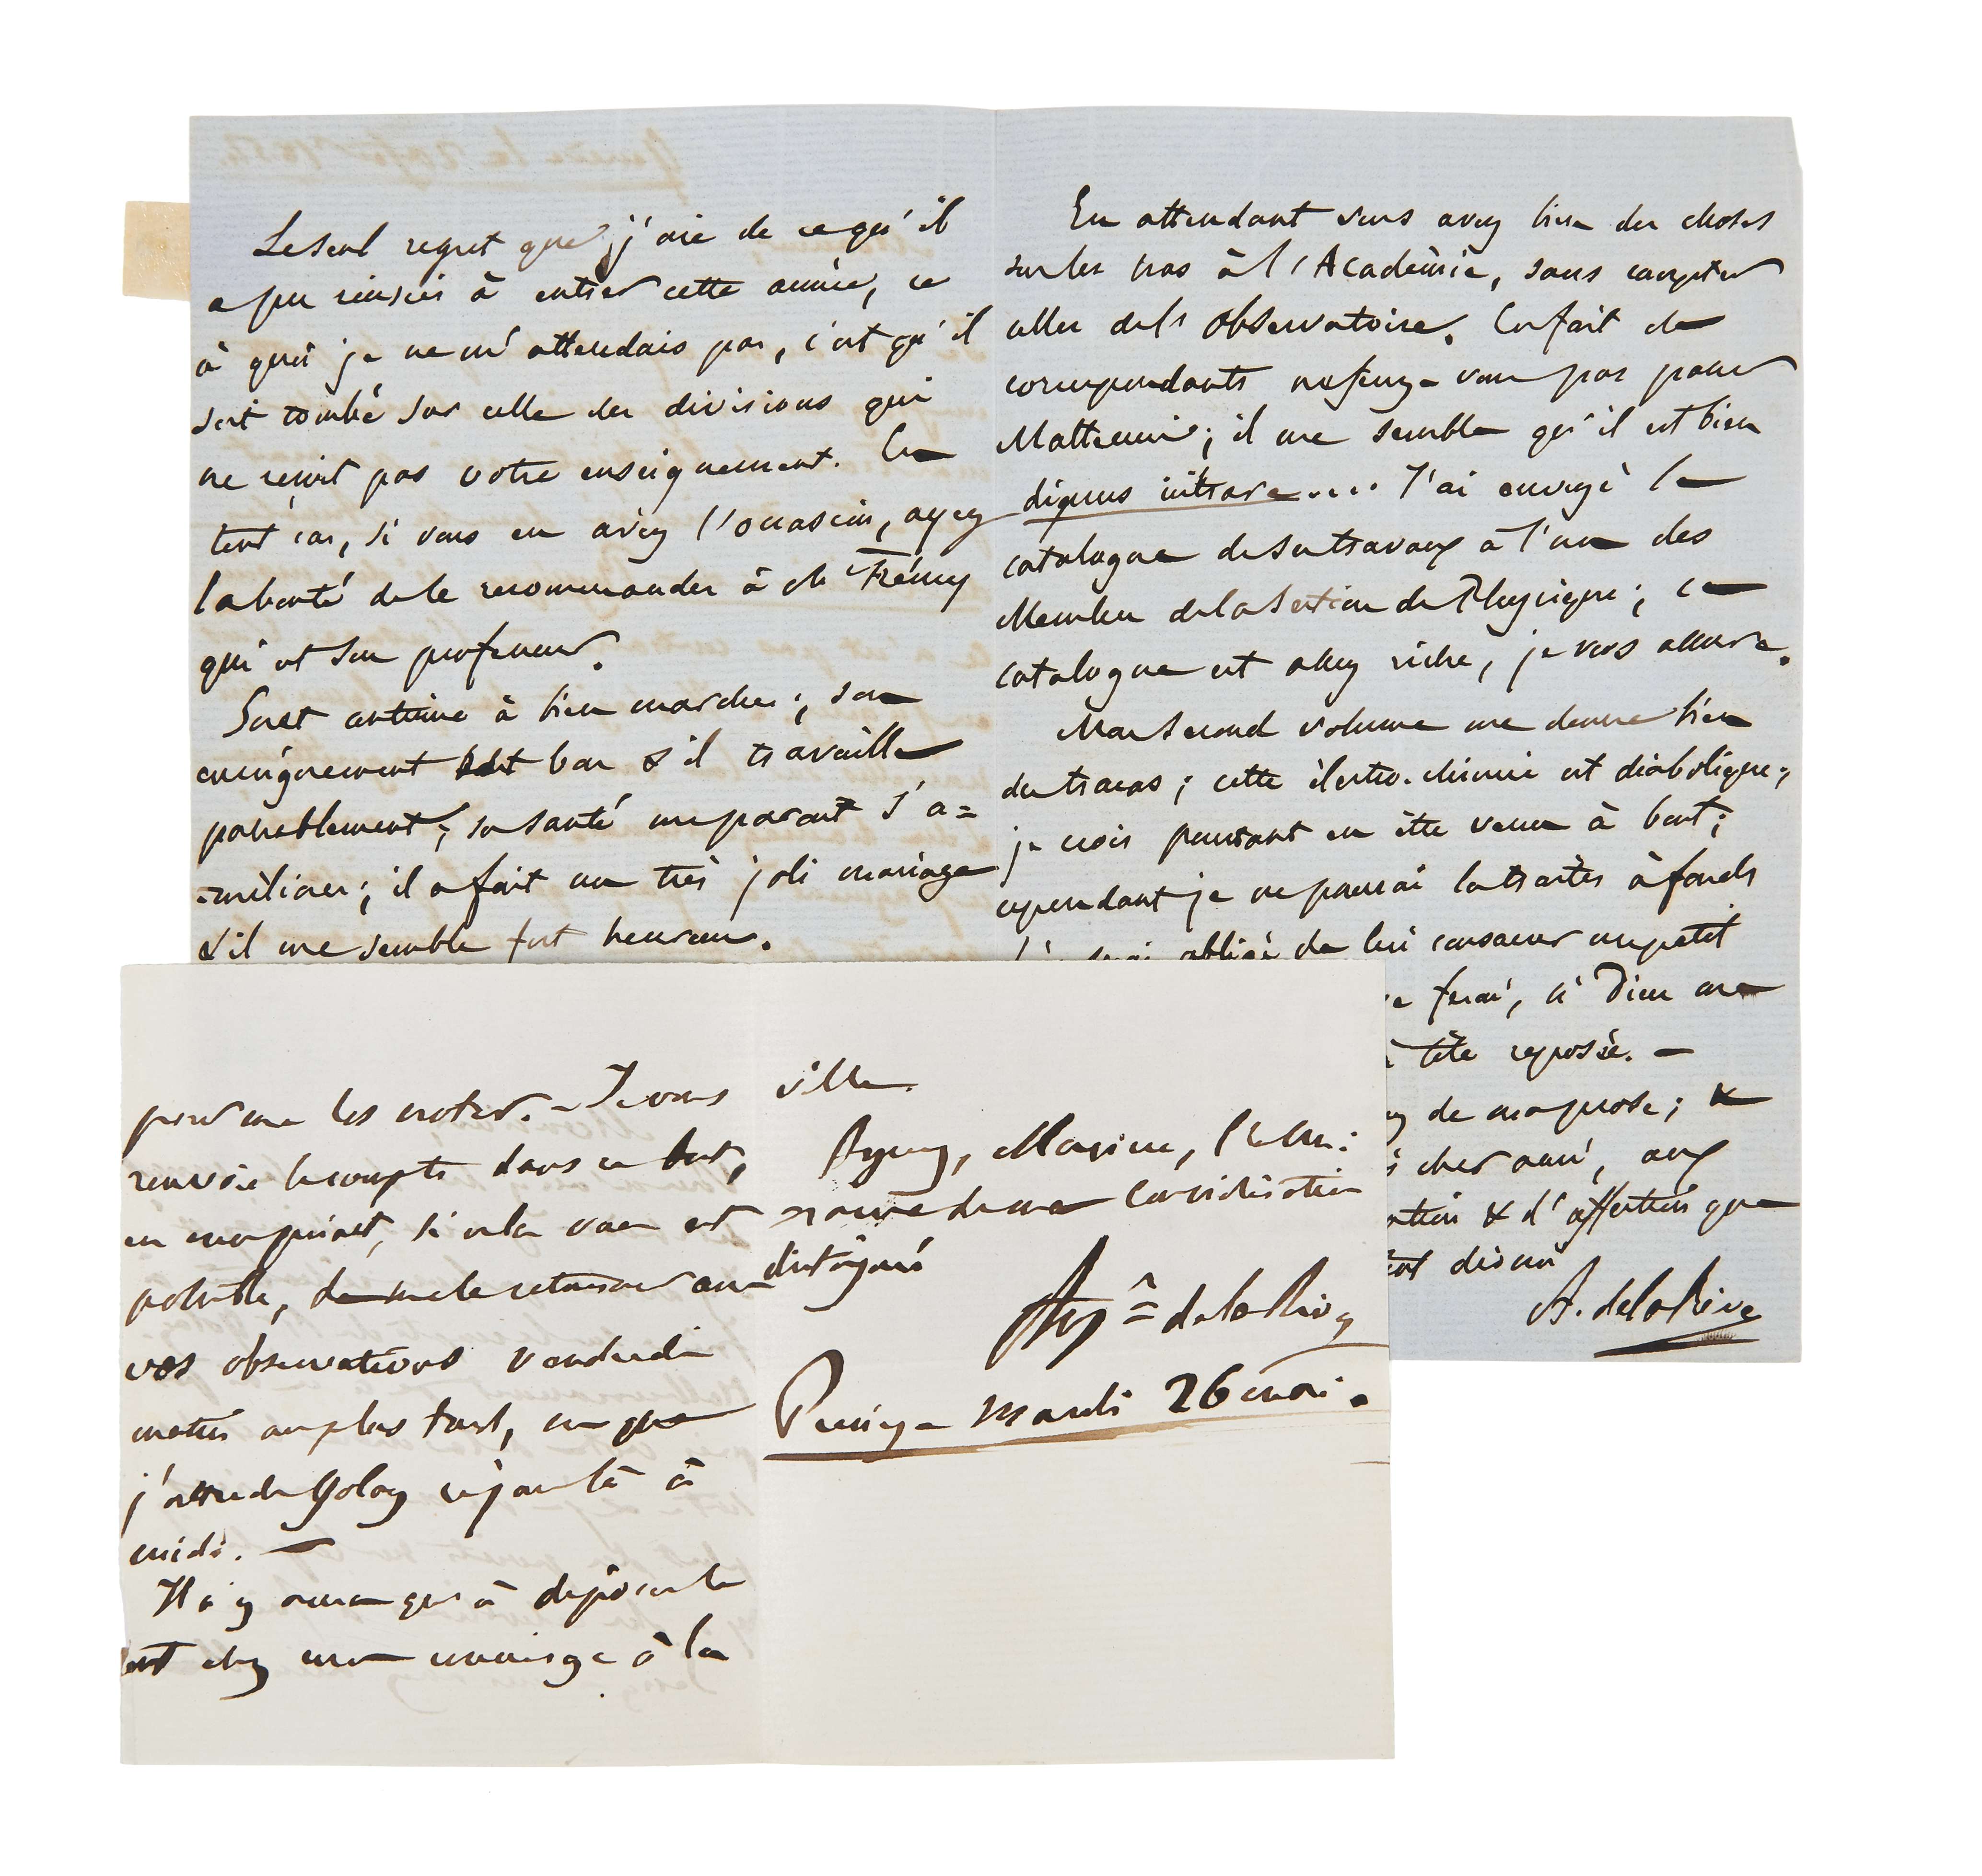 Le seul regret que j'aie de ce qu'il
a pu réussir à entrer cette année, ce
à quoi je ne m'attendais pas, c'est qu'il
soit tombé sur celle des divisions qui
ne reçoit pas votre enseignement. En
tout cas, si vous en avez l'occasion, ayez
la bonté de le recommander à Mr Frémy
qui est son professeur.
Soret continue à bien marcher; son
enseignement est bon & il travaille
passablement; sa santé me paroit s'a=
=méliorer; il a fait un très joli mariage
& il me semble fort heureux.
En attendant vous avez bien des choses
sur les bras à l'Académie, sans compter
celles de l'Observatoire. En fait de
correspondants ne ferez-vous pas passer
Matteucci; il me semble qu'il est bien
dignus intrare.... J'ai envoyé le
catalogue de ses travaux à l'un des
Membres de la Section de Physique; ce
catalogue est assez riche, je vous assure.
Mon second volume me donne bien
du tracas; cette électro-chimie est diabolique;
je crois pourtant en être venu à bout;
cependant je ne pourrai la traiter à fonds
obligé de lui consacrer un petit
ferai, si Dieu me
tête reposée. —
de ma prose; &
cher ami, aux
& d'affection que
A. de la Rive
pour me les noter. – Je vous
renvoie le compte dans ce but,
en vous priant, si cela vous est
possible, de me le retourner avec
vos observations vendredi
matin au plus tard, vu que
j'attends Golay ce jour là à
midi. —
Il n'y aura qu'à déposer le
tout chez mon concierge à la
ville.
Agréez, Monsieur, l'
de ma considération
distinguée
Aug.te de la Rive
Presinge mardi 26 mai.